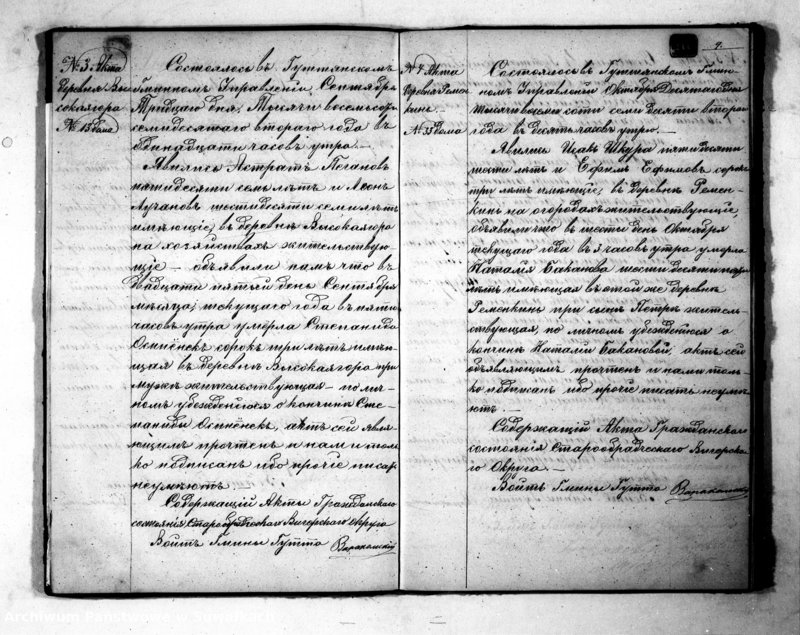 № 3. Акта
деревня Вы-
сокаягора
№ 13 дома
Состоялось въ Гуттанскомъ
Гминномъ Управленіи, Сентября
Тридцаго дня, Тысяча восемьсотъ
семидесятаго втораго года въ
одинадцати часовъ утра. —
Явились Астратъ Пегановъ
пятидесяти семь лѣтъ и Леонъ
Лугановъ шестидесяти семи лѣтъ
имѣющіе, въ деревнѣ Высокаягора
на хозяйствахъ жительствую-
щіе — объявили намъ что въ
двадцати пятый день Сентября
мѣсяца, текущаго года въ пяти
часовъ утра умерла Степанида
сорокъ три лѣтъ имѣю-
щая въ деревнѣ Высокаягора при
мужѣ жительствующая — по лич-
номъ убѣжденіи о кончинѣ Сте-
паниды актъ сей явля-
ющимъ прочтенъ и нами толь-
ко подписанъ ибо прочіе писать
неумѣютъ.
Содержащій Акты Гражданскаго
состоянія Старообрядческаго Вигерскаго округа
Войтъ Гмины Гутта
4.
№ 7 Акта
деревня Ремен-
кинь.
№ 35 дома
Состоялось въ Гуттанскомъ Гмин-
номъ Управленіи Октября Десятаго дня
тысяча восемьсотъ семидесяти втораго
года въ десять часовъ утра. —
Явились Исавъ Шкура пятидесяти
шести лѣтъ и Ефимъ Ефимовъ сорокъ
три лѣтъ имѣющіе, въ деревнѣ Ремен-
кинь на огородахъ жительствующіе,
объявили что въ шести день Октября
текущаго года въ 3 часовъ утра умерла
Наталія Баканова шестидесяти
лѣтъ имѣющая въ той же деревнѣ
Ременкинь при сынѣ Петрѣ житель-
ствующая, по личномъ убѣжденіи о
кончинѣ Наталіи Бакановой, актъ сей
объявляющимъ прочтенъ и нами толь-
ко подписанъ ибо прочіе писать неумѣ-
ютъ. —
Содержащій Акта Гражданскаго
состоянія Старообрадческаго Вигерска-
го Округа —
Войтъ Гмины Гутта
Archiwum Państwowe w Suwałkach